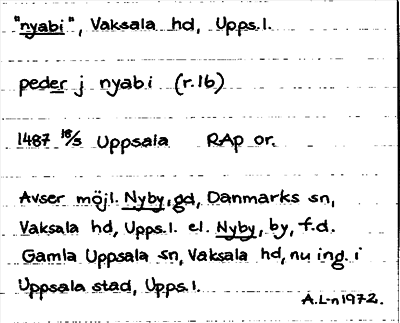 "nyabi", Vaksala hd, Upps.l.
peder j nyabi (r.1b)
1487 18/5 Uppsala RAp or.
Avser möjl. Nyby, gd, Danmarks sn,
Vaksala hd, Upps.l. el. Nyby, by, f.d.
Gamla Uppsala sn, Vaksala hd, nu ing. i
Uppsala stad, Upps.l.
A.L-n 1972.